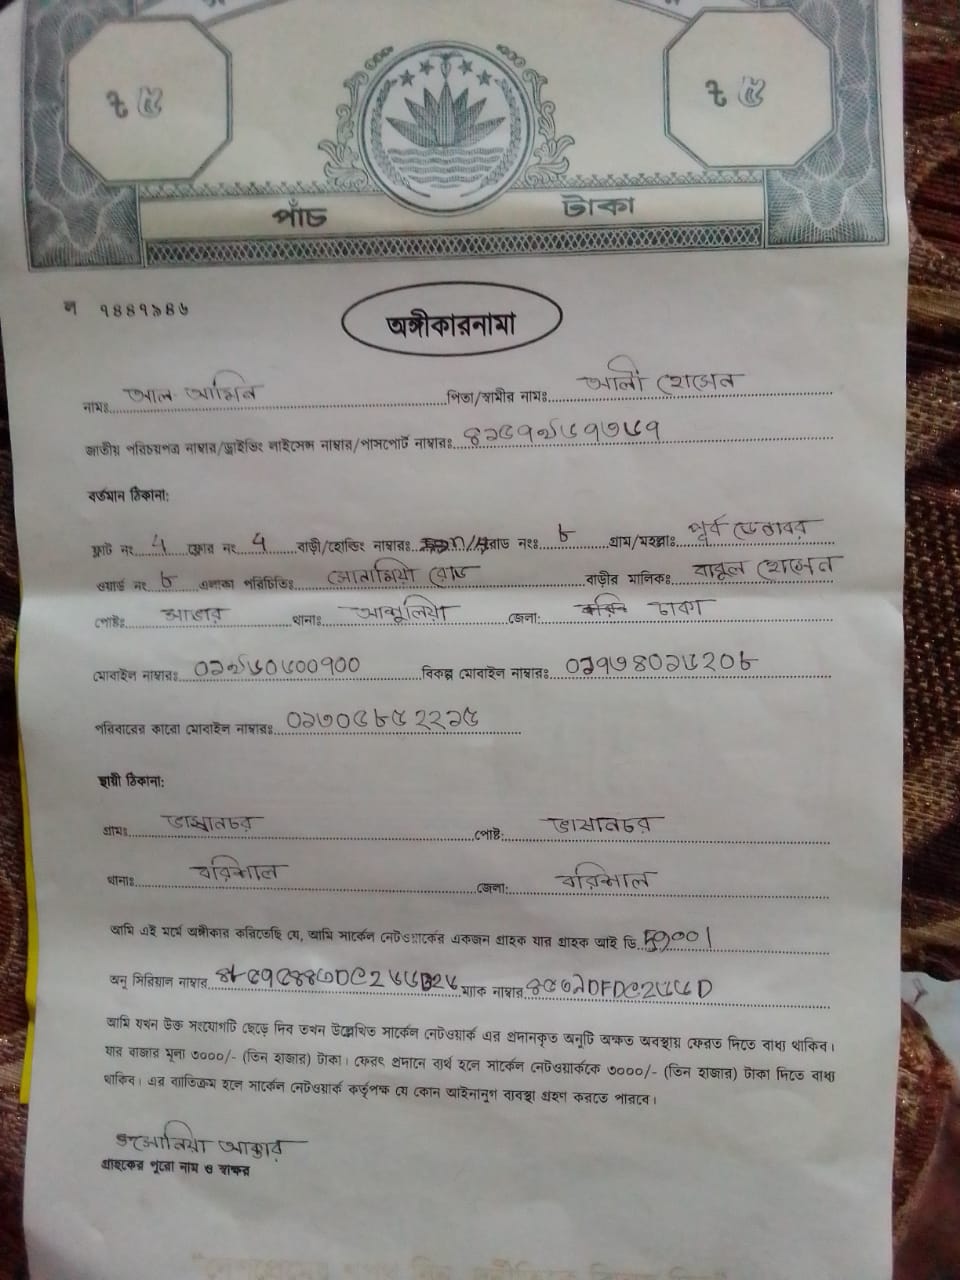 ৳ ৫ ৳ ৫
পাঁচ টাকা
ন ৭৪৪৭৯৪৬
অঙ্গীকারনামা
নামঃ আল আমিন পিতা/স্বামীর নামঃ আলী হোসেন
জাতীয় পরিচয়পত্র নাম্বার/ড্রাইভিং লাইসেন্স নাম্বার/পাসপোর্ট নাম্বারঃ
বর্তমান ঠিকানা:
ফ্লাট নং 4 ফ্লোর নং 4 বাড়ী/হোল্ডিং নাম্বারঃ রোড নংঃ ৮ গ্রাম/মহল্লাঃ পূর্ব ডেন্ডাবর
ওয়ার্ড নং ৮ এলাকা পরিচিতিঃ সোনামিয়া রোড বাড়ীর মালিকঃ বাবুল হোসেন
পোষ্টঃ সাভার থানাঃ আশুলিয়া জেলা: ঢাকা
মোবাইল নাম্বারঃ ০১৯৬০৬০০৭০০ বিকল্প মোবাইল নাম্বারঃ ০১৭৩৪০১৬২০৮
পরিবারের কারো মোবাইল নাম্বারঃ ০১৩০৫৮৫২২১৫
স্থায়ী ঠিকানা:
গ্রামঃ ভাসানচর পোষ্ট: ভাসানচর
থানাঃ বরিশাল জেলা: বরিশাল
আমি এই মর্মে অঙ্গীকার করিতেছি যে, আমি সার্কেল নেটওয়ার্কের একজন গ্রাহক যার গ্রাহক আই ডি
অনু সিরিয়াল নাম্বার ম্যাক নাম্বার
আমি যখন উক্ত সংযোগটি ছেড়ে দিব তখন উল্লেখিত সার্কেল নেটওয়ার্ক এর প্রদানকৃত অনুটি অক্ষত অবস্থায় ফেরত দিতে বাধ্য থাকিব।
যার বাজার মূল্য ৩০০০/- (তিন হাজার) টাকা। ফেরৎ প্রদানে ব্যর্থ হলে সার্কেল নেটওয়ার্ককে ৩০০০/- (তিন হাজার) টাকা দিতে বাধ্য
থাকিব। এর ব্যতিক্রম হলে সার্কেল নেটওয়ার্ক কর্তৃপক্ষ যে কোন আইনানুগ ব্যবস্থা গ্রহণ করতে পারবে।
সোনিয়া আক্তার
গ্রাহকের পুরো নাম ও স্বাক্ষর